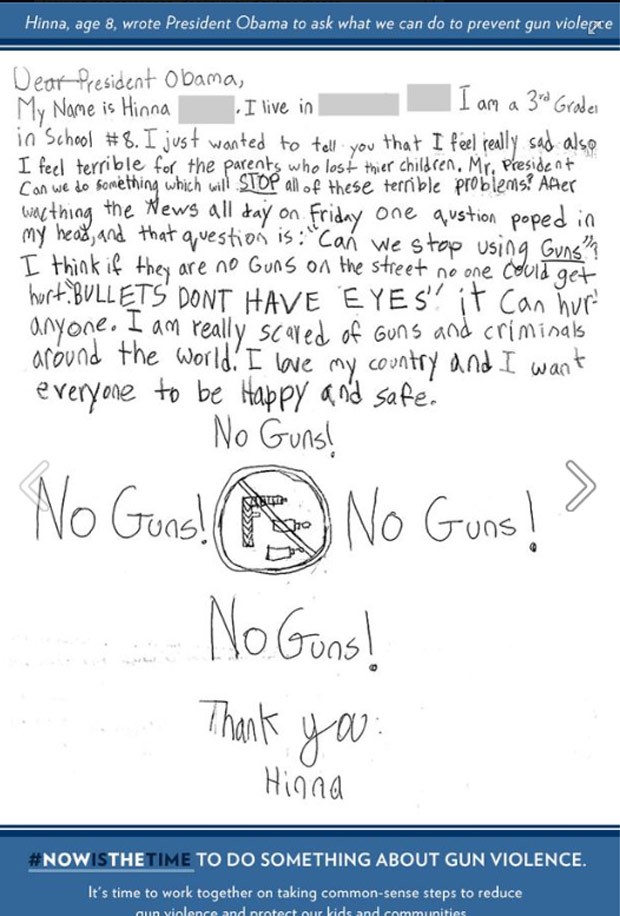 Hinna, age 8, wrote President Obama to ask what we can do to prevent gun violence
Dear President Obama,
My Name is Hinna . I live in I am a 3rd Grader
in School #8. I just wanted to tell you that I feel really sad also
I feel terrible for the parents who lost thier children. Mr. President
Can we do something which will STOP all of these terrible problems? After
wacthing the News all day on Friday one qustion poped in
my head, and that question is: "Can we stop using Guns"?
I think if they are no Guns on the street no one could get
hurt. "BULLETS DONT HAVE EYES" it can hurt
anyone. I am really scared of Guns and criminals
around the world. I love my country and I want
everyone to be Happy and safe.
No Guns!
No Guns! No Guns!
No Guns!
Thank you:
Hinna
#NOWISTHETIME TO DO SOMETHING ABOUT GUN VIOLENCE.
It's time to work together on taking common-sense steps to reduce
gun violence and protect our kids and communities.